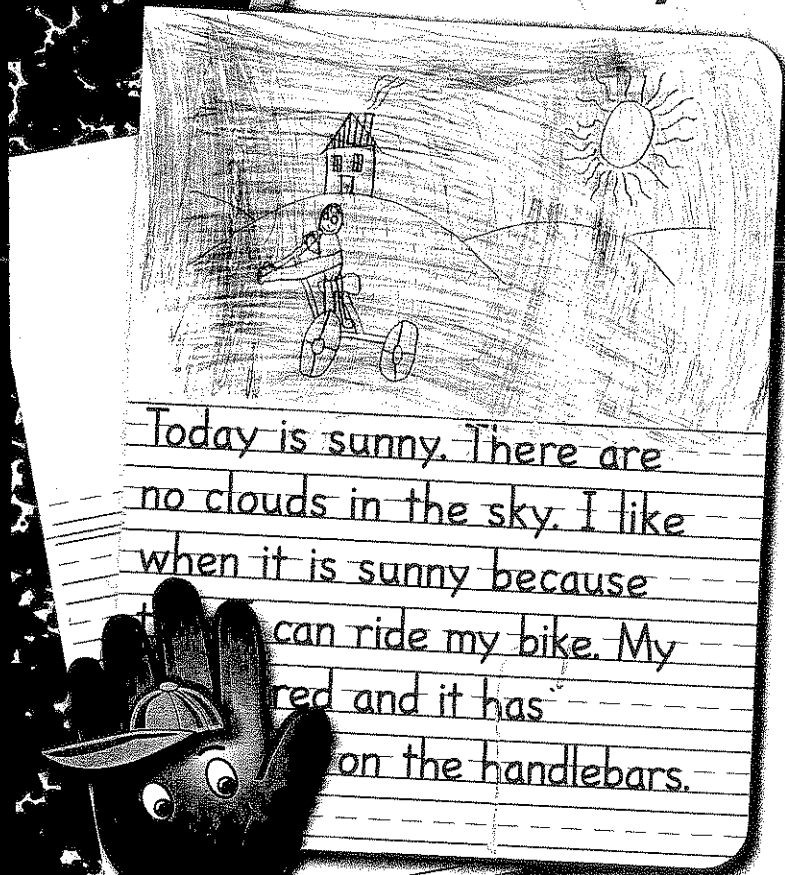 Today is sunny. There are
no clouds in the sky. I like
when it is sunny because
can ride my bike. My
red and it has
on the handlebars.